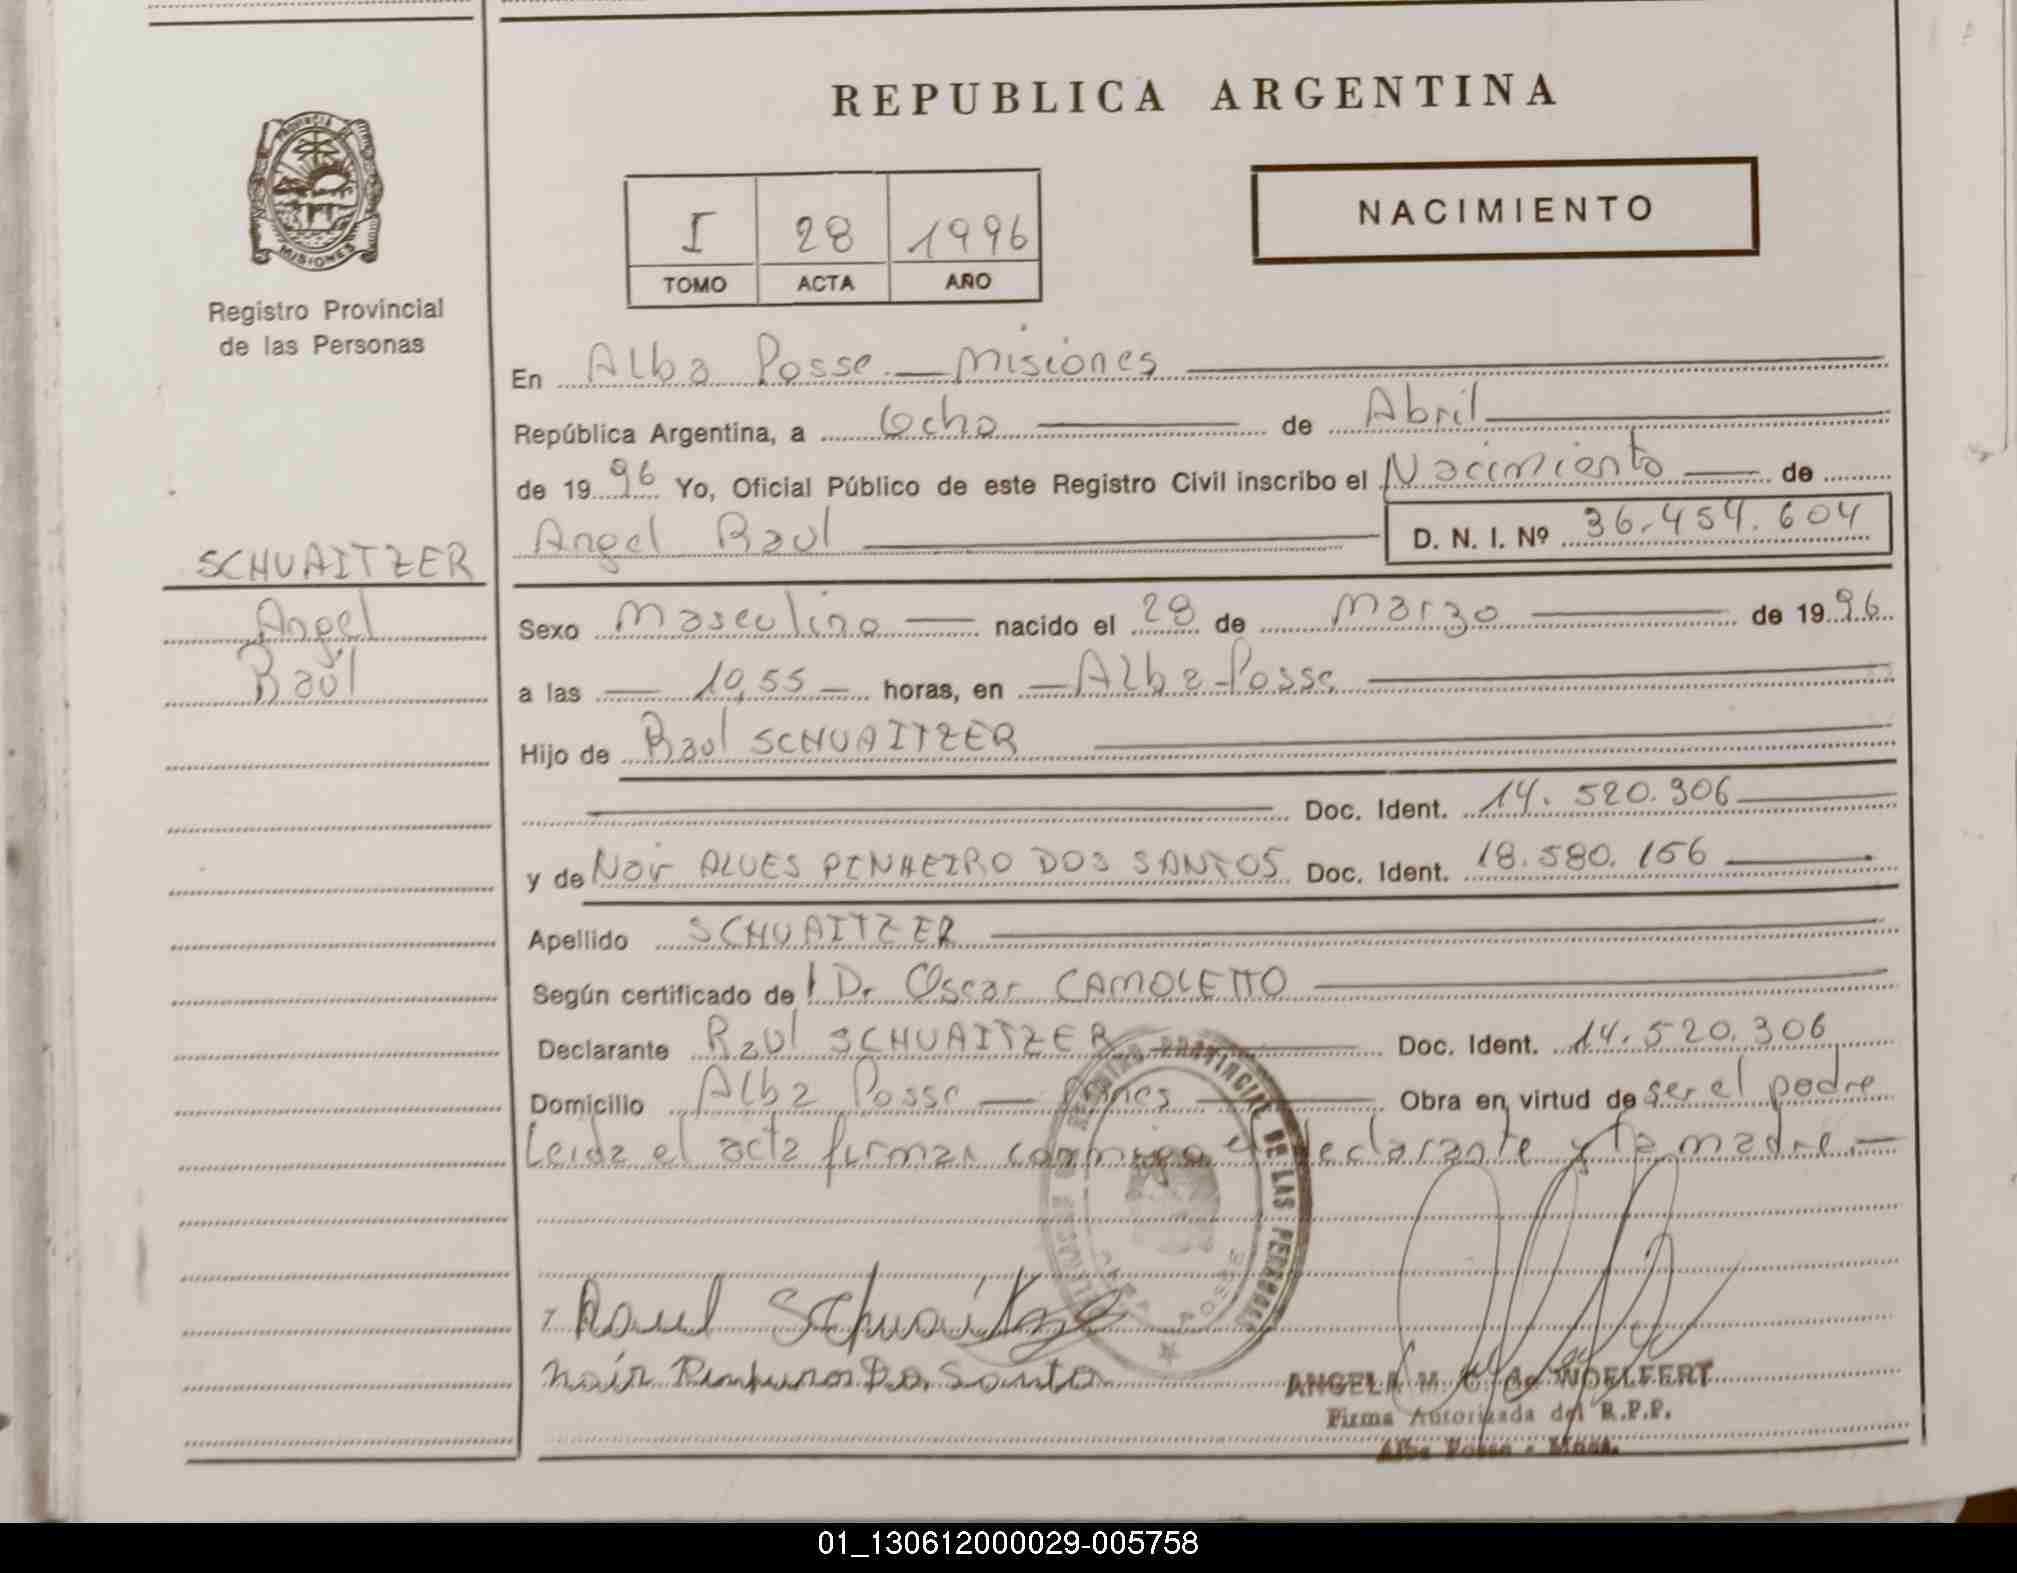 REPUBLICA ARGENTINA
NACIMIENTO
I 28 1996
TOMO ACTA AÑO
PROVINCIA DE MISIONES
Registro Provincial
de las Personas
SCHUAITZER
Angel
Raúl
En Alba Posse — Misiones
República Argentina, a Ocho de Abril
de 1996 Yo, Oficial Público de este Registro Civil inscribo el Nacimiento de
Angel Raul D. N. I. Nº 36.454.604
Sexo Masculino nacido el 28 de Marzo de 1996
a las — 10,55 — horas, en — Alba Posse
Hijo de Raul SCHUAITZER
Doc. Ident. 14.520.306
y de Nair ALVES PINHEIRO DOS SANTOS Doc. Ident. 18.580.156
Apellido SCHUAITZER
Según certificado de Dr Oscar CAMOLETTO
Declarante Raul SCHUAITZER Doc. Ident. 14.520.306
Domicilio Alba Posse — Mnes Obra en virtud de ser el padre
Leida el acta firman conmigo el declarante y la madre.—
REGISTRO PROVINCIAL DE LAS PERSONAS
ALBA POSSE
Raul Schuaitzer
Nair Dos Santos
ANGELA M. C. de WOELFERT
Firma Autorizada del R.P.P.
Alba Posse - Mnes.
01_130612000029-005758